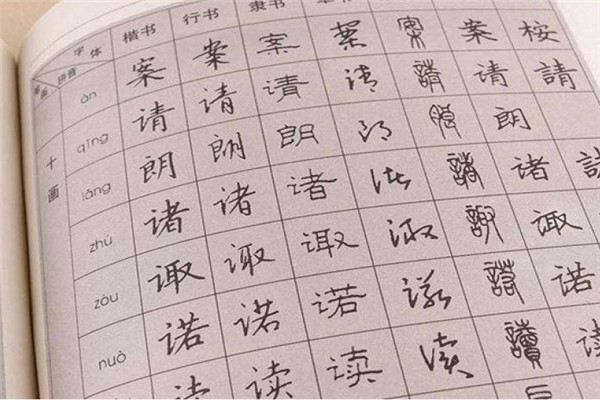 字体 楷书 行书 隶书
拼音
十画
àn 案 案 案 案 案 案 桉
qǐng 请 请 请 请 請 请 請
lǎng 朗 朗 朗 朗 朗 朗
zhū 诸 诸 诸 诸 諸 诸
zōu 诹 诹 诹 诹 諏 诹
nuò 诺 诺 诺 诺 諾 诺
读 读 读 读 讀 读